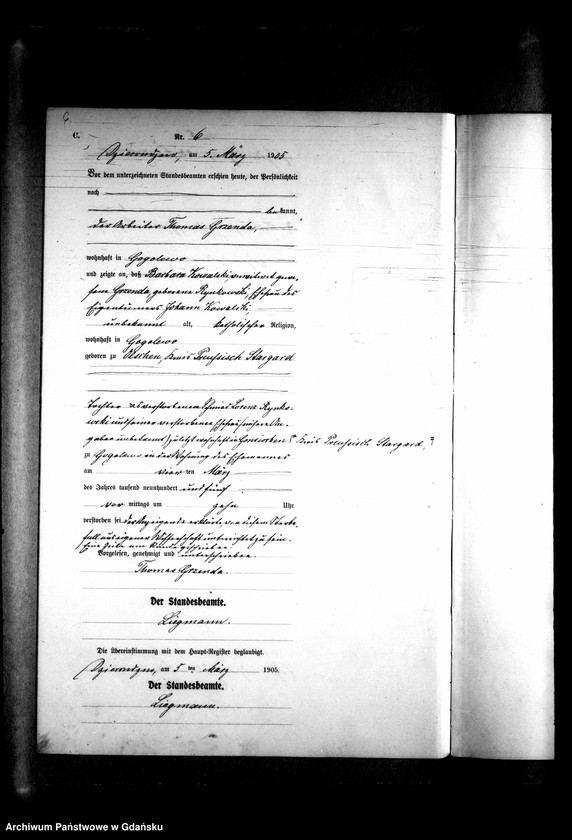 6.
C.
Nr. 6
am 5. März 1905
Vor dem unterzeichneten Standesbeamten erschien heute, der Persönlichkeit
nach
bekannt,
der Arbeiter Thomas Grzenda,
wohnhaft in Gogolewo
und zeigte an, daß Barbara Kowalski, verwitwet gewe-
sene Grzenda, geborene Rynkowski, Ehefrau des
Eigentümers Johann Kowalski,
unbekannt alt, katholischer Religion,
wohnhaft in Gogolewo
geboren zu Kreis Preußisch Stargard
Tochter des verstorbenen Lorenz Rynko-
wski und seiner verstorbenen Ehefrau, nähere An-
gaben unbekannt, zuletzt wohnhaft in Kreis Preußisch Stargard,
zu Gogolewo in der Wohnung des Ehemannes
am vier ten März
des Jahres tausend neunhundert und fünf
vor mittags um zehn Uhr
verstorben sei. Der Anzeigende erklärte, von diesem Sterbe-
fall aus eigener Wissenschaft unterrichtet zu sein.
Eine Zeile am Rande geschrieben.
Vorgelesen, genehmigt und unterschrieben
Thomas Grzenda.
Der Standesbeamte.
Liegmann.
Die Übereinstimmung mit dem Haupt-Register beglaubigt.
am 5 ten März 1905.
Der Standesbeamte.
Liegmann.
Archiwum Państwowe w Gdańsku